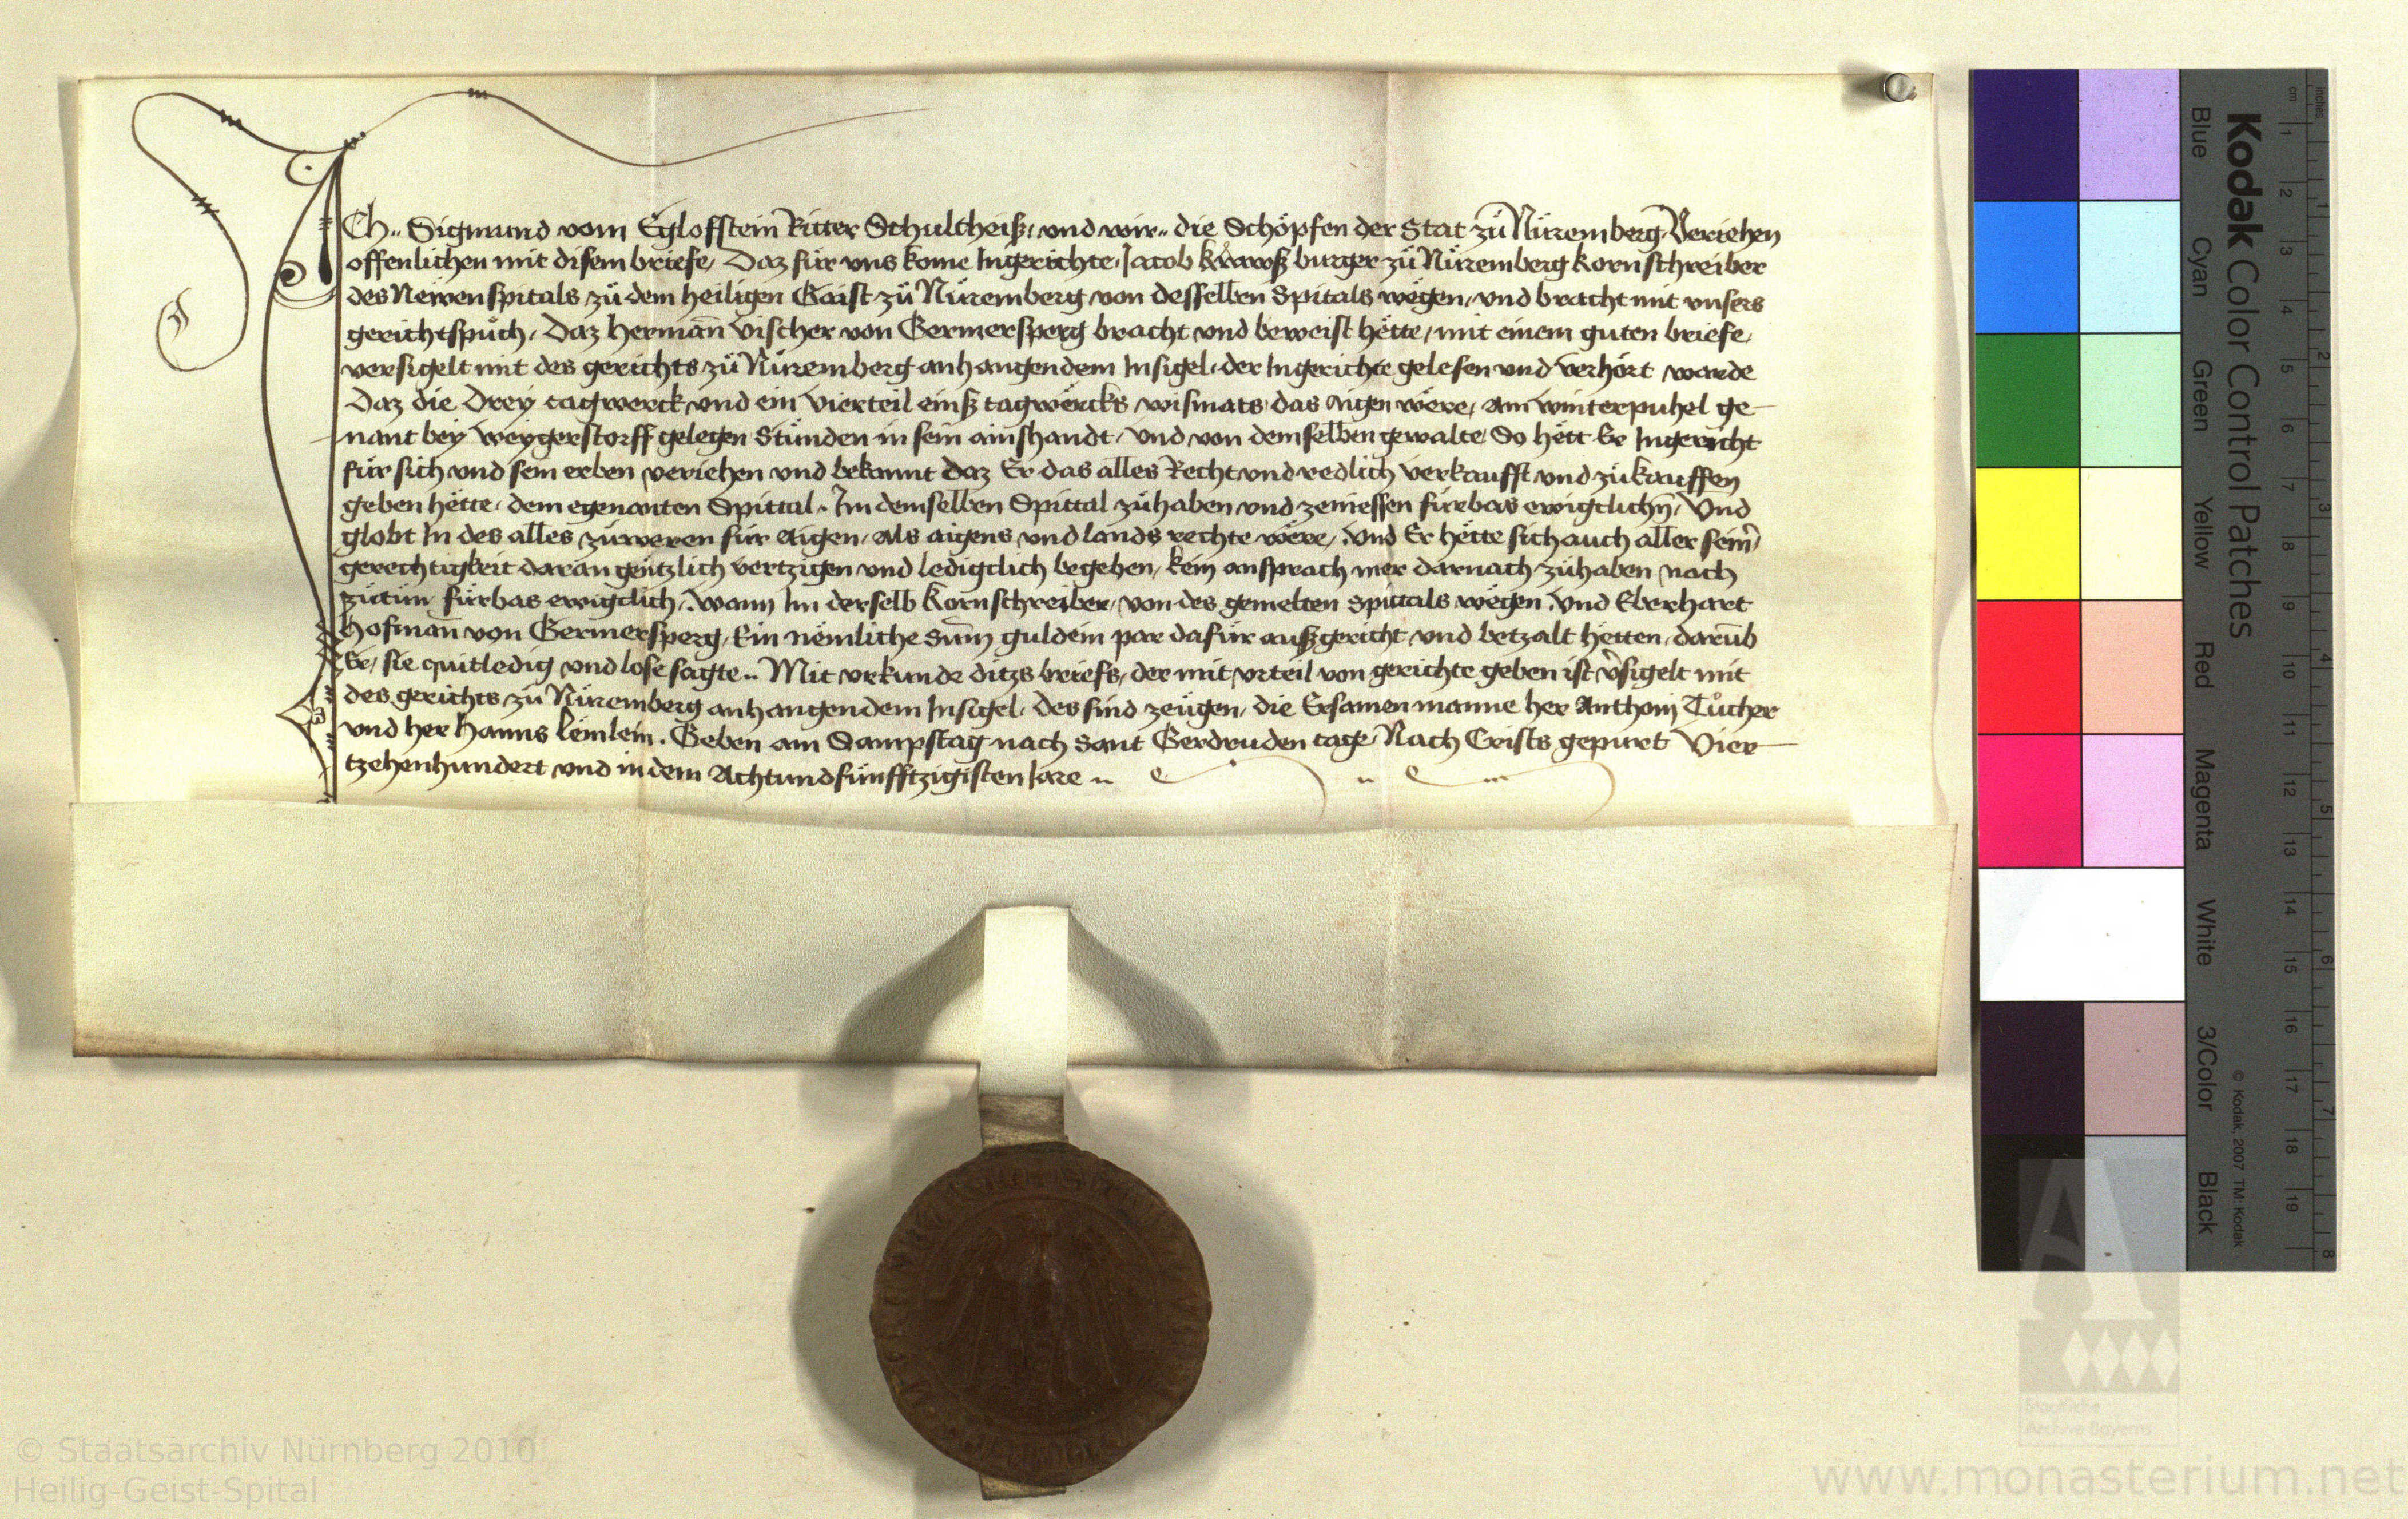 ICh.. Sigmund vom Egloffstein Ritter Schultheiß, vnd wir.. die Schöpfen der Stat zů Nüremberg, Veriehen
offenlichen mit disem briefe, Daz für vns kome Ingerichte, Jacob burger zů Nüremberg kornschreiber
des Newen spitals zů dem heiligen Gaist zů Nüremberg von desselben Spitals wëgen, vnd bracht mit vnsers
gerichtspůch, Daz herman̄ Vischer von Germersperg bracht vnd beweist hëtte, mit einem guten briefe,
versigelt mit des gerichts zů Nüremberg anhangendem Insigel, der Ingerichte gelesen vnd verhört warde
Daz die Drey tagwerck vnd ein vierteil einß tagwërcks wismats das Aigen wëre, am winterpuhel ge-
nant bey weygerstorff gelegen Stůnden in sein ainshandt, vnd von demselben gewalte, So hëtt Er Ingericht
für sich vnd sein erben veriehen vnd bekannt daz Er das alles Recht vnd redlich verkaufft vnd zů kauffen
geben hëtte, dem egenanten Spittal, Im demselben Spittal zů haben vnd zeniessen fürbas ewigclichn̄, Vnd
globt In des alles zů weren für Aigen, als aigens vnd lands rechte wëre, Vnd Er hëtte sich auch aller sein̄
gerechtigkeit daran gentzlich vertzigen vnd ledigclich begeben, kein ansprach mer darnach zů haben nach
zůtun fürbas ewigclich, Wann Im derselb Kornschreiber, von des gemelten Spittals wëgen, vnd Eberhart
Hofman̄ von Germersperg, Ein nëmliche Sum̄ guldein par dafür außgericht vnd betzalt hetten, darūb
Er, sie quitledig vnd lose sagte.. Mit vrkunde ditzs briefs, der mit vrteil von gerichte geben ist v̄sigelt mit
des gerichts zů Nüremberg anhangendem Insigel, des sind zeügen, die Ersamen manne her Anthonj Tůcher
vnd her Hanns lëmlein. Geben am Sampstag nach Sant Gerdruden tage, Nach Crists gepurt Vier-
tzehenhundert vnd in dem Achtundfünfftzigisten Jare ..
Kodak Color Control Patches
Blue Cyan Green Yellow Red Magenta White 3/Color Black
© Kodak, 2007 TM: Kodak
cm 1 2 3 4 5 6 7 8 9 10 11 12 13 14 15 16 17 18 19
inches 1 2 3 4 5 6 7 8
Staatliche
Archive Bayerns
© Staatsarchiv Nürnberg 2010
Heilig-Geist-Spital
www.monasterium.net